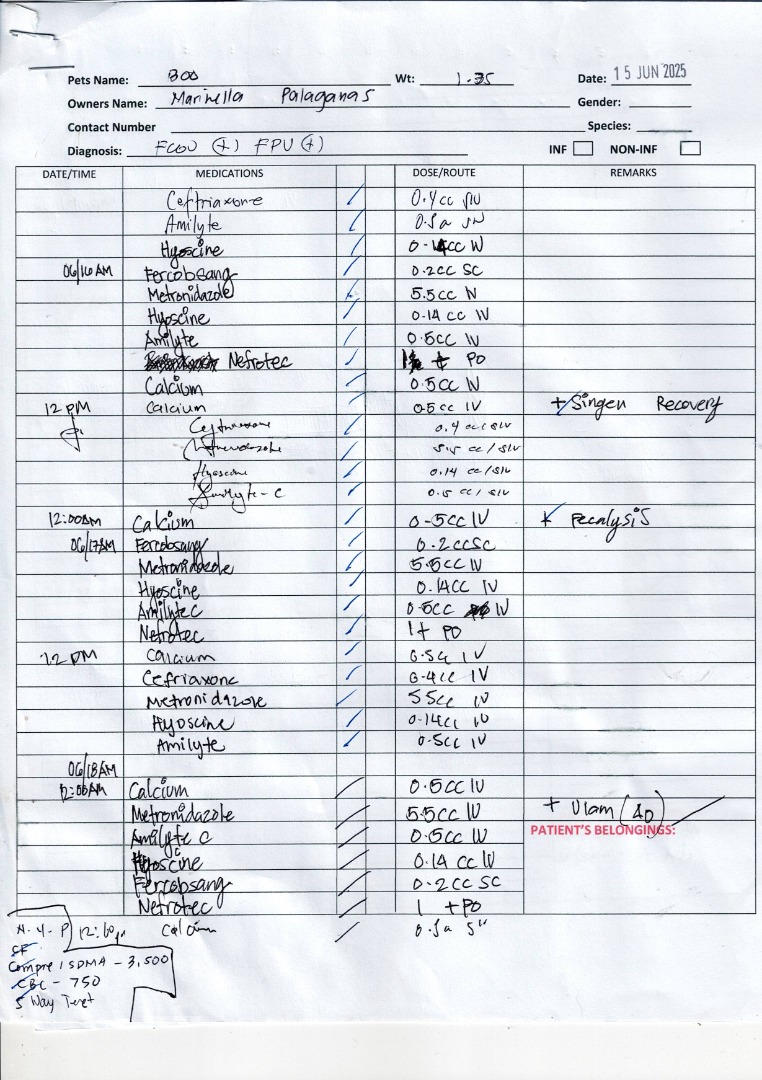 Pets Name: BOO Wt: 1.35 Date: 15 JUN 2025
Owners Name: Marinella Palaganas Gender:
Contact Number Species:
Diagnosis: FCOV (+) FPV (+) INF NON-INF
DATE/TIME MEDICATIONS DOSE/ROUTE REMARKS
Ceftriaxone 0.4cc SIV
Amilyte 0.5cc SIV
Hyoscine 0.14cc IV
06/16 AM Fercobsang 0.2cc SC
Metronidazole 5.5cc IV
Hyoscine 0.14 cc IV
Amilyte 0.5cc IV
Nefrotec 1 t PO
Calcium 0.5cc IV
12 PM Calcium 0.5cc IV + Singen Recovery
Ceftriaxone 0.4 cc/SIV
Metronidazole 5.5 cc/SIV
Hyoscine 0.14 cc/SIV
Amilyte-C 0.5 cc/SIV
12:00AM Calcium 0.5cc IV * Fecalysis
06/17AM Fercobsang 0.2ccSC
Metronidazole 5.5cc IV
Hyoscine 0.14cc IV
Amilytec 0.5cc IV
Nefrotec 1t PO
12 PM Calcium 0.5cc IV
Ceftriaxone 0.4cc IV
Metronidazole 5.5cc IV
Hyoscine 0.14cc IV
Amilyte 0.5cc IV
06/18AM
12:00AM Calcium 0.5cc IV
Metronidazole 5.5cc IV + Ulam (AD)
Amilyte C 0.5cc IV PATIENT'S BELONGINGS:
Hyoscine 0.14 cc IV
Fercobsang 0.2cc SC
Nefrotec 1 t PO
N.Y.P Calcium
SF
Compre / SDMA - 3,500
CBC - 750
5 Way Test